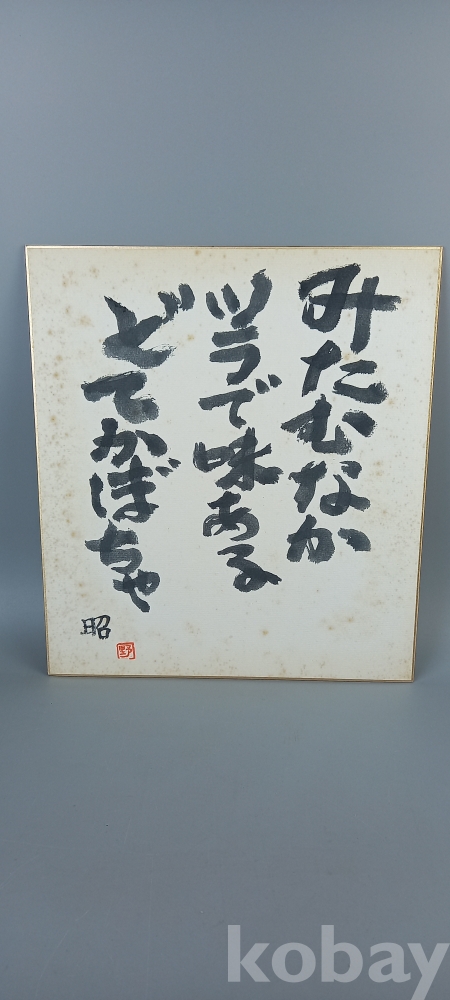 みたむなか
ツラで味ある
どてかぼちゃ
昭
野
kobay